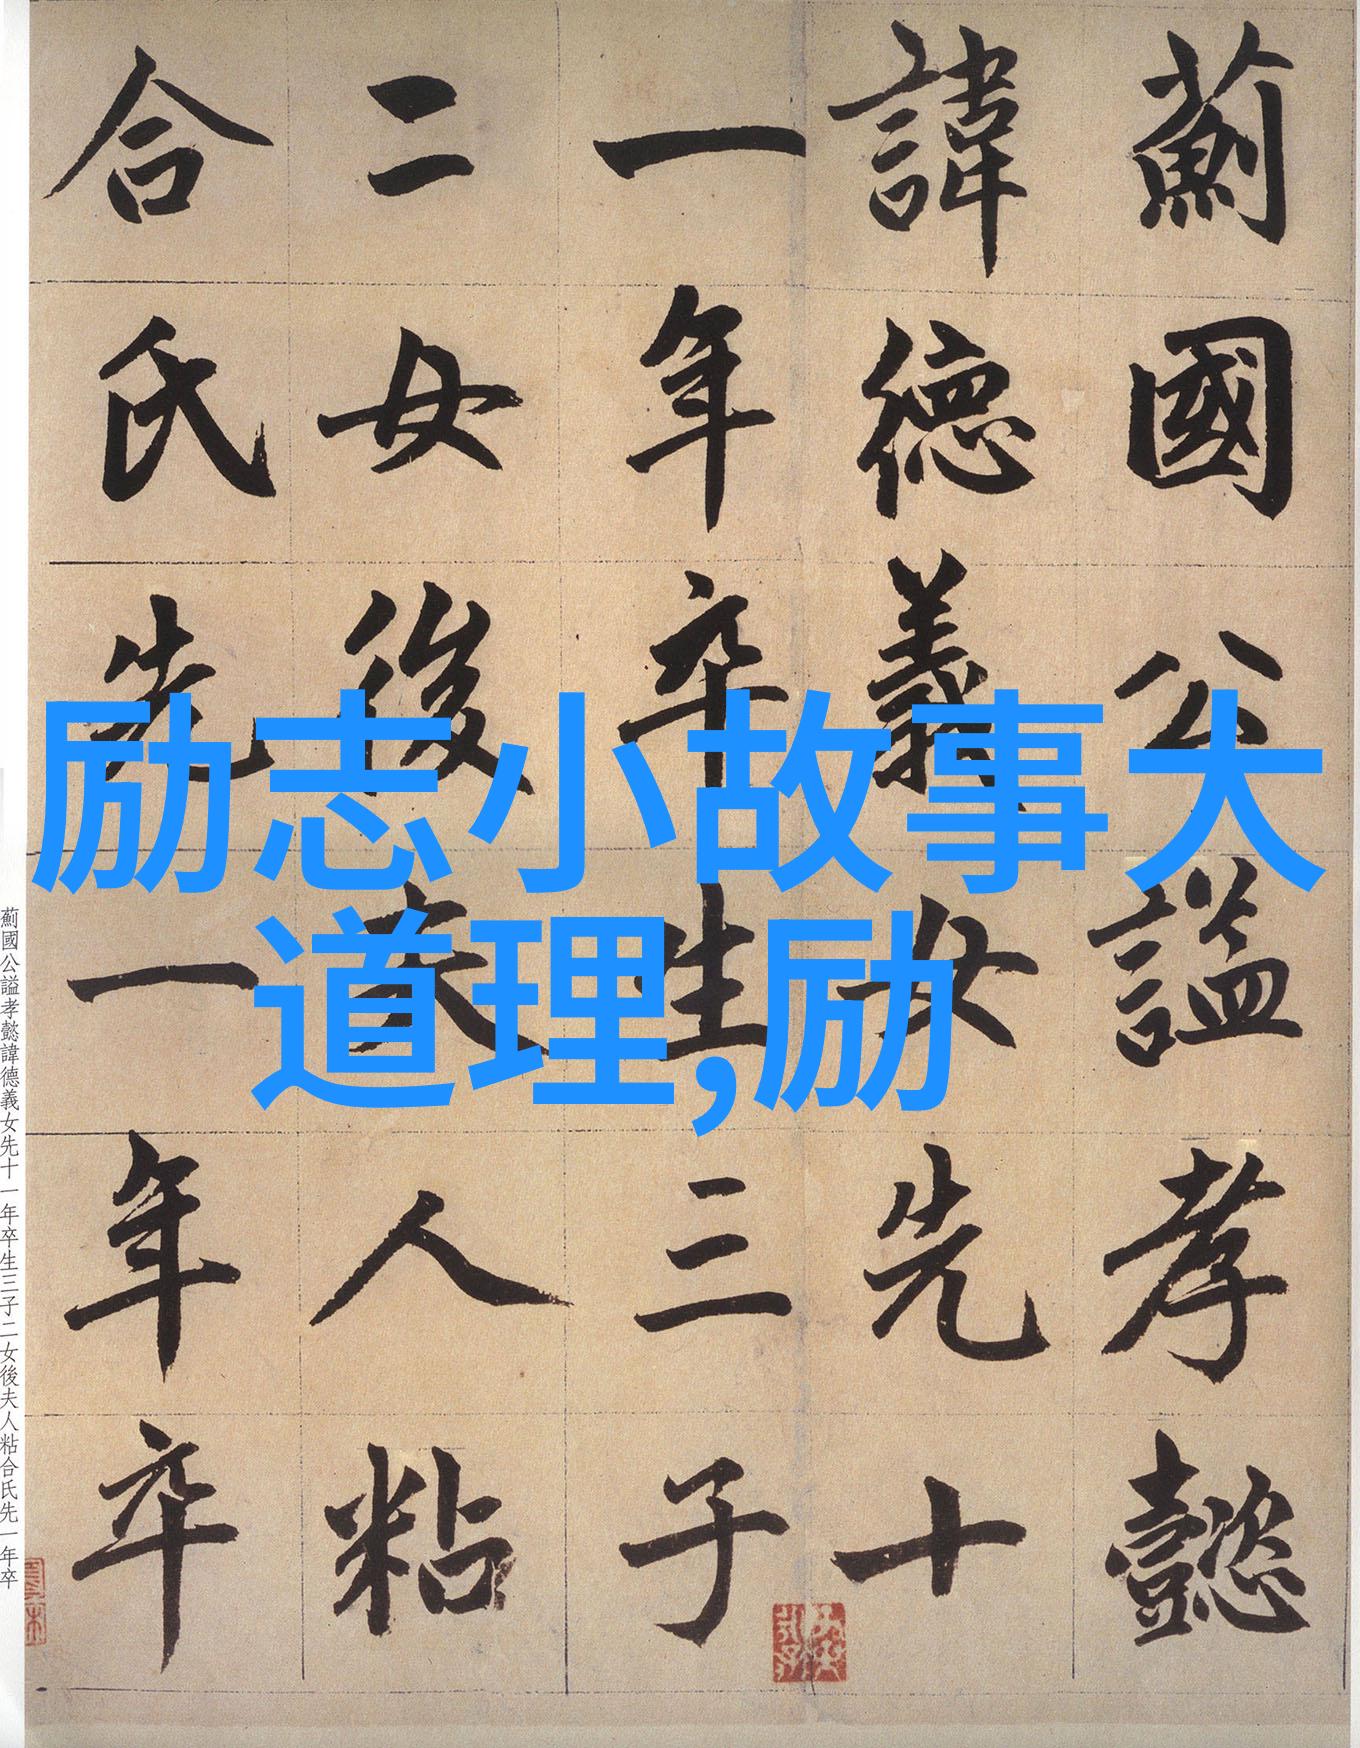 薊國公謚孝懿
諱德義女先十
一年卒生三子
二女後夫人粘
合氏先一年卒
励志小故事大
道理,励
薊國公謚孝懿諱德義女先十一年卒生三子二女後夫人粘合氏先一年卒